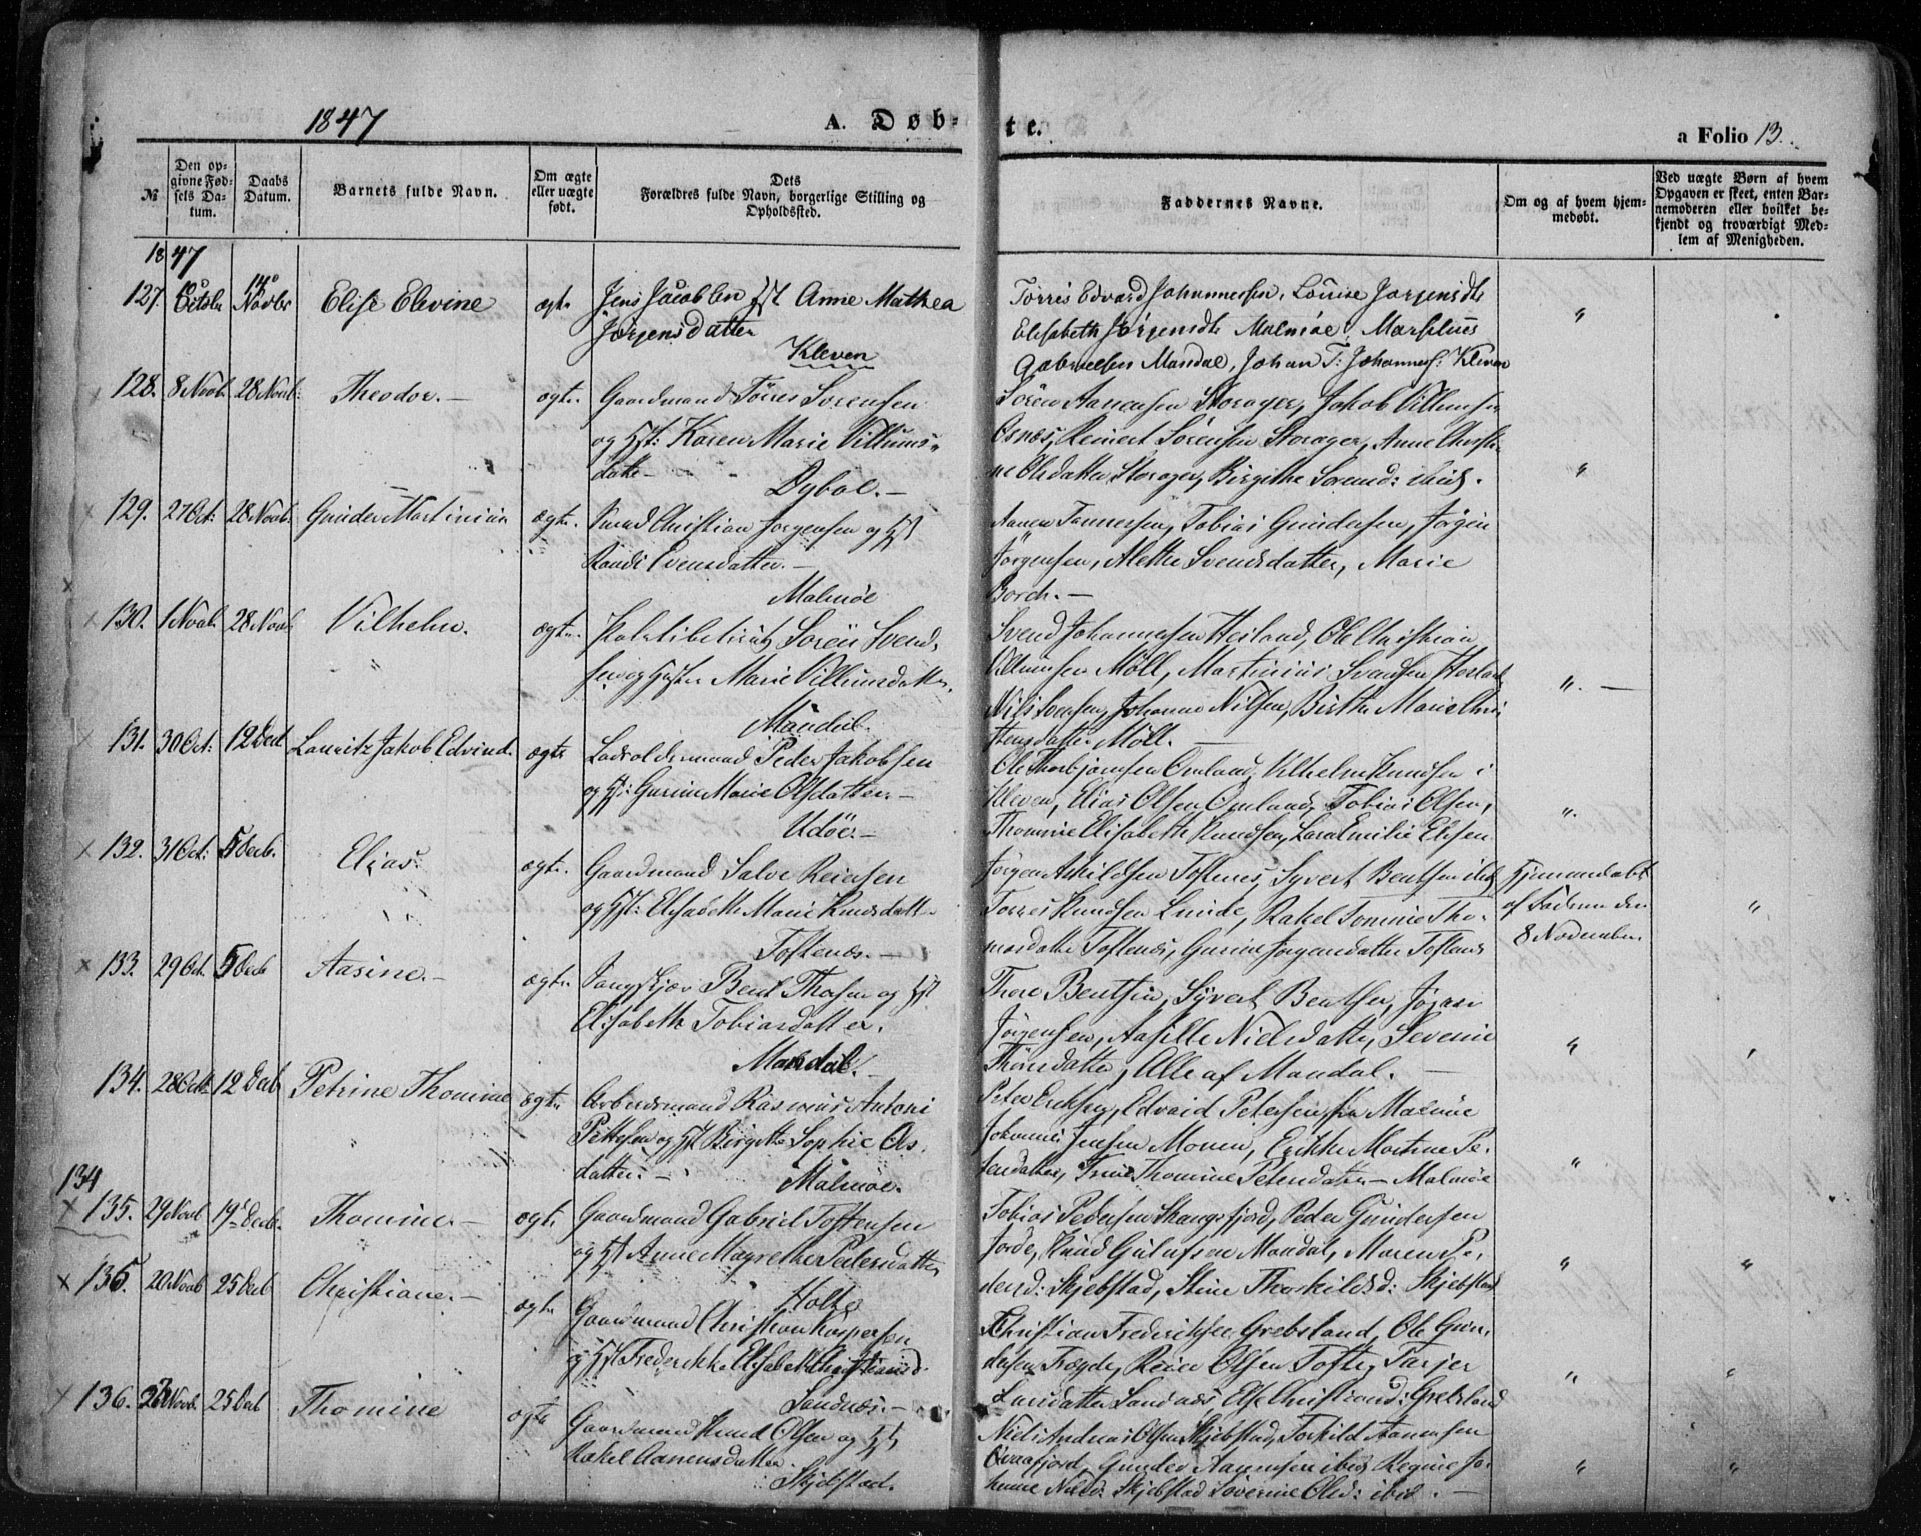 1847
A. Døb-
te.
a Folio 13.
№
Den opgivne Fødsels Datum.
Daabs Datum.
Barnets fulde Navn.
Om ægte eller uægte født.
Dets Forældres fulde Navn, borgerlige Stilling og Opholdssted.
Faddernes Navne.
Om og af hvem hjemmedøbt.
Ved uægte Børn af hvem Opgaven er skeet, enten Barnemoderen eller hvilket bekjendt og troværdigt Medlem af Menigheden.
1847
127. Octbr Novbr Elise Elevine ægte Jens Jacobsen Hst Anne Mathea
Jørgensdatter
Kleven
Tørres Edvard Johannessen, Louise Jørgensdtr
Elisabeth Jørgensdtr Malmöe, Marselius
Gabrielsen Mandal, Johan T: Johannesf: Kleven
128. 8 Novb. 28 Novb. Theodor. ægte. Gaardmand Törres Sörensen
og Hst: Karen Marie Villums-
datter
Dybol.
Sören Aanensen Storager, Jakob Villumsen
Osnæs, Reinert Sörensen Storager, Anne Christi-
ne Olsdatter Storager, Birgithe Sorensd: ibid.
129. 27 Oct: 28 Novb. Gunder Martinius ægte. Christian Jorgensen og Hst
Randi Evensdatter.
Malmöe
Aanen Tonnessen, Tobias Gundersen, Jörgen
Jörgensen, Alethe Svendsdatter, Marie
Borch.
130. 1 Novb. 28 Novb. Vilhelm. ægte. Sören Svend-
sen og Hst Marie Villumsdatter.
Mandal.
Svend Johannessen Heiland, Ole Christian
Villumsen Möll, Martinius Svendsen
Nils Johanne Nilsen, Birthe Marie Chri-
stensdatter Möll.
131. 30 Oct: 12 Decb Lauritz Jakob Edvind. ægte Lodsoldermand Peder Jakobsen
og Hst: Gurine Marie Olsdatter.
Udöe.
Ole Thorbjörnsen Omland, Vilhelm Knudsen i
Kleven, Elias Olsen Omland, Tobias Olsen,
Thomine Elisabeth Knudsen, Lara Emilie Elisen
132. 31 Oct: 5 Decb. Elias. ægte. Gaardmand Salve Reiersen
og Hst: Elisabeth Marie Knudsdatter
Toftenæs.
Jörgen Askildsen Toftenes, Syvert Bentsen ibid
Torres Knudsen Lunde, Rakel Tomine Tho-
masdatter Toftenæs, Gurine Jörgensdatter
Hjemmedöbt
af Faderen den
8 November.
133. 29 Oct. 5 Decb Aasine. ægte. Bent Thorsen og Hst
Elisabeth Tobiasdatter.
Mandal.
Thore Bentsen, Syvert Bentsen, Jörgen
Jörgensen, Aasille Nielsdatter, Severine
Alle af Mandal.
134. 28 Oct. 12 Decb Petrine Thomine ægte. Arbeidsmand Rasmus Antoni
Pettersen og Hst Birgethe Sophie Ols-
datter.
Malmöe.
Peter Eriksen, Edvard Petersen fra Malmöe
Johannes Jensen Monen, Erikke Martine Pe-
tersdatter, Trine Thomine Petersdatter Malmöe
134
135. 29 Novb 19 Decb. Thomine. ægte Gaardmand Gabriel Toftensen
og Hst Anne Magrethe Pedersdatter
Holte
Tobias Pedersen Skangsfjord, Peder Gundersen
Jorde, Knud Gulufsen Mandal, Maren Pe-
dersd: Skjebstad, Stine Thorkildsd: Skjebstad
135. 20 Novb 25 Decb Christiane. ægte. Gaardmand Christian Kaspersen
og Hst Frederikke Elisabeth
Sandnæs.
Christian Frederiksen Grebsland, Ole Gun-
dersen Trægde, Reier Olsen Tofte, Tarjer
Larsdatter Sandnæs Else Grebsland
136. 23 Novb. 25 Decb Thomine ægte Gaardmand Knud Olsen og Hst
Rakel Aanensdatter.
Skjebstad.
Niels Andreas Olsen Skjebstad, Torkild Aanensen
Gunder Aanensen ibid Regine Jo-
hanne Skjebstad Severine Olsd: ibid.